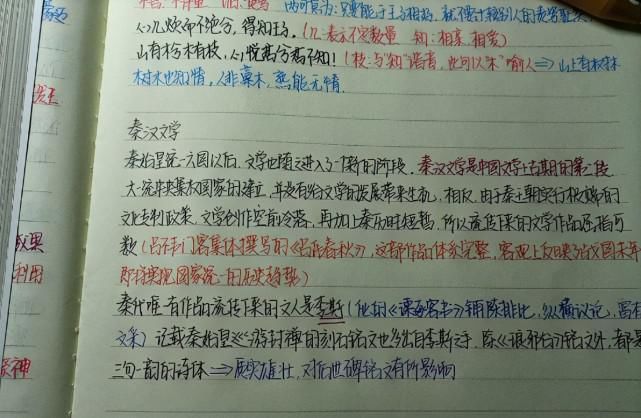 心几烦而不绝兮,得知王子。(几:表示不定数量 知:相亲相爱)
山有木兮木有枝,心悦君兮君不知!(枝:与"知"谐音,也可以来喻人⇒山上有树木
树木也知情,人非草木,孰能无情.
秦汉文学
秦始皇统一六国以后,文学也随之进入了一个新的阶段.秦汉文学是中国文学上古期的第二段
大一统中央集权国家的建立,并没有给文学的发展带来生机,相反,由于秦王朝实行极端的
文化专制政策,文学创作空前冷落,再加上秦历时短暂,所以流传下来的文学作品屈指可
数(吕不韦门客集体撰写的《吕氏春秋》,这部作品体系完整,客观上反映了战国末年
即将实现国家统一的历史趋势)
秦代唯一有作品流传下来的文人是李斯(他的《谏逐客书》铺陈排比,纵横议论,富有
文采)记载秦始皇巡游封禅的刻石铭文也多出自李斯之手.除《琅邪台》铭文外,都是
三句一韵的诗体⇒质实雄壮,对后世碑铭文有所影响
效果
利用